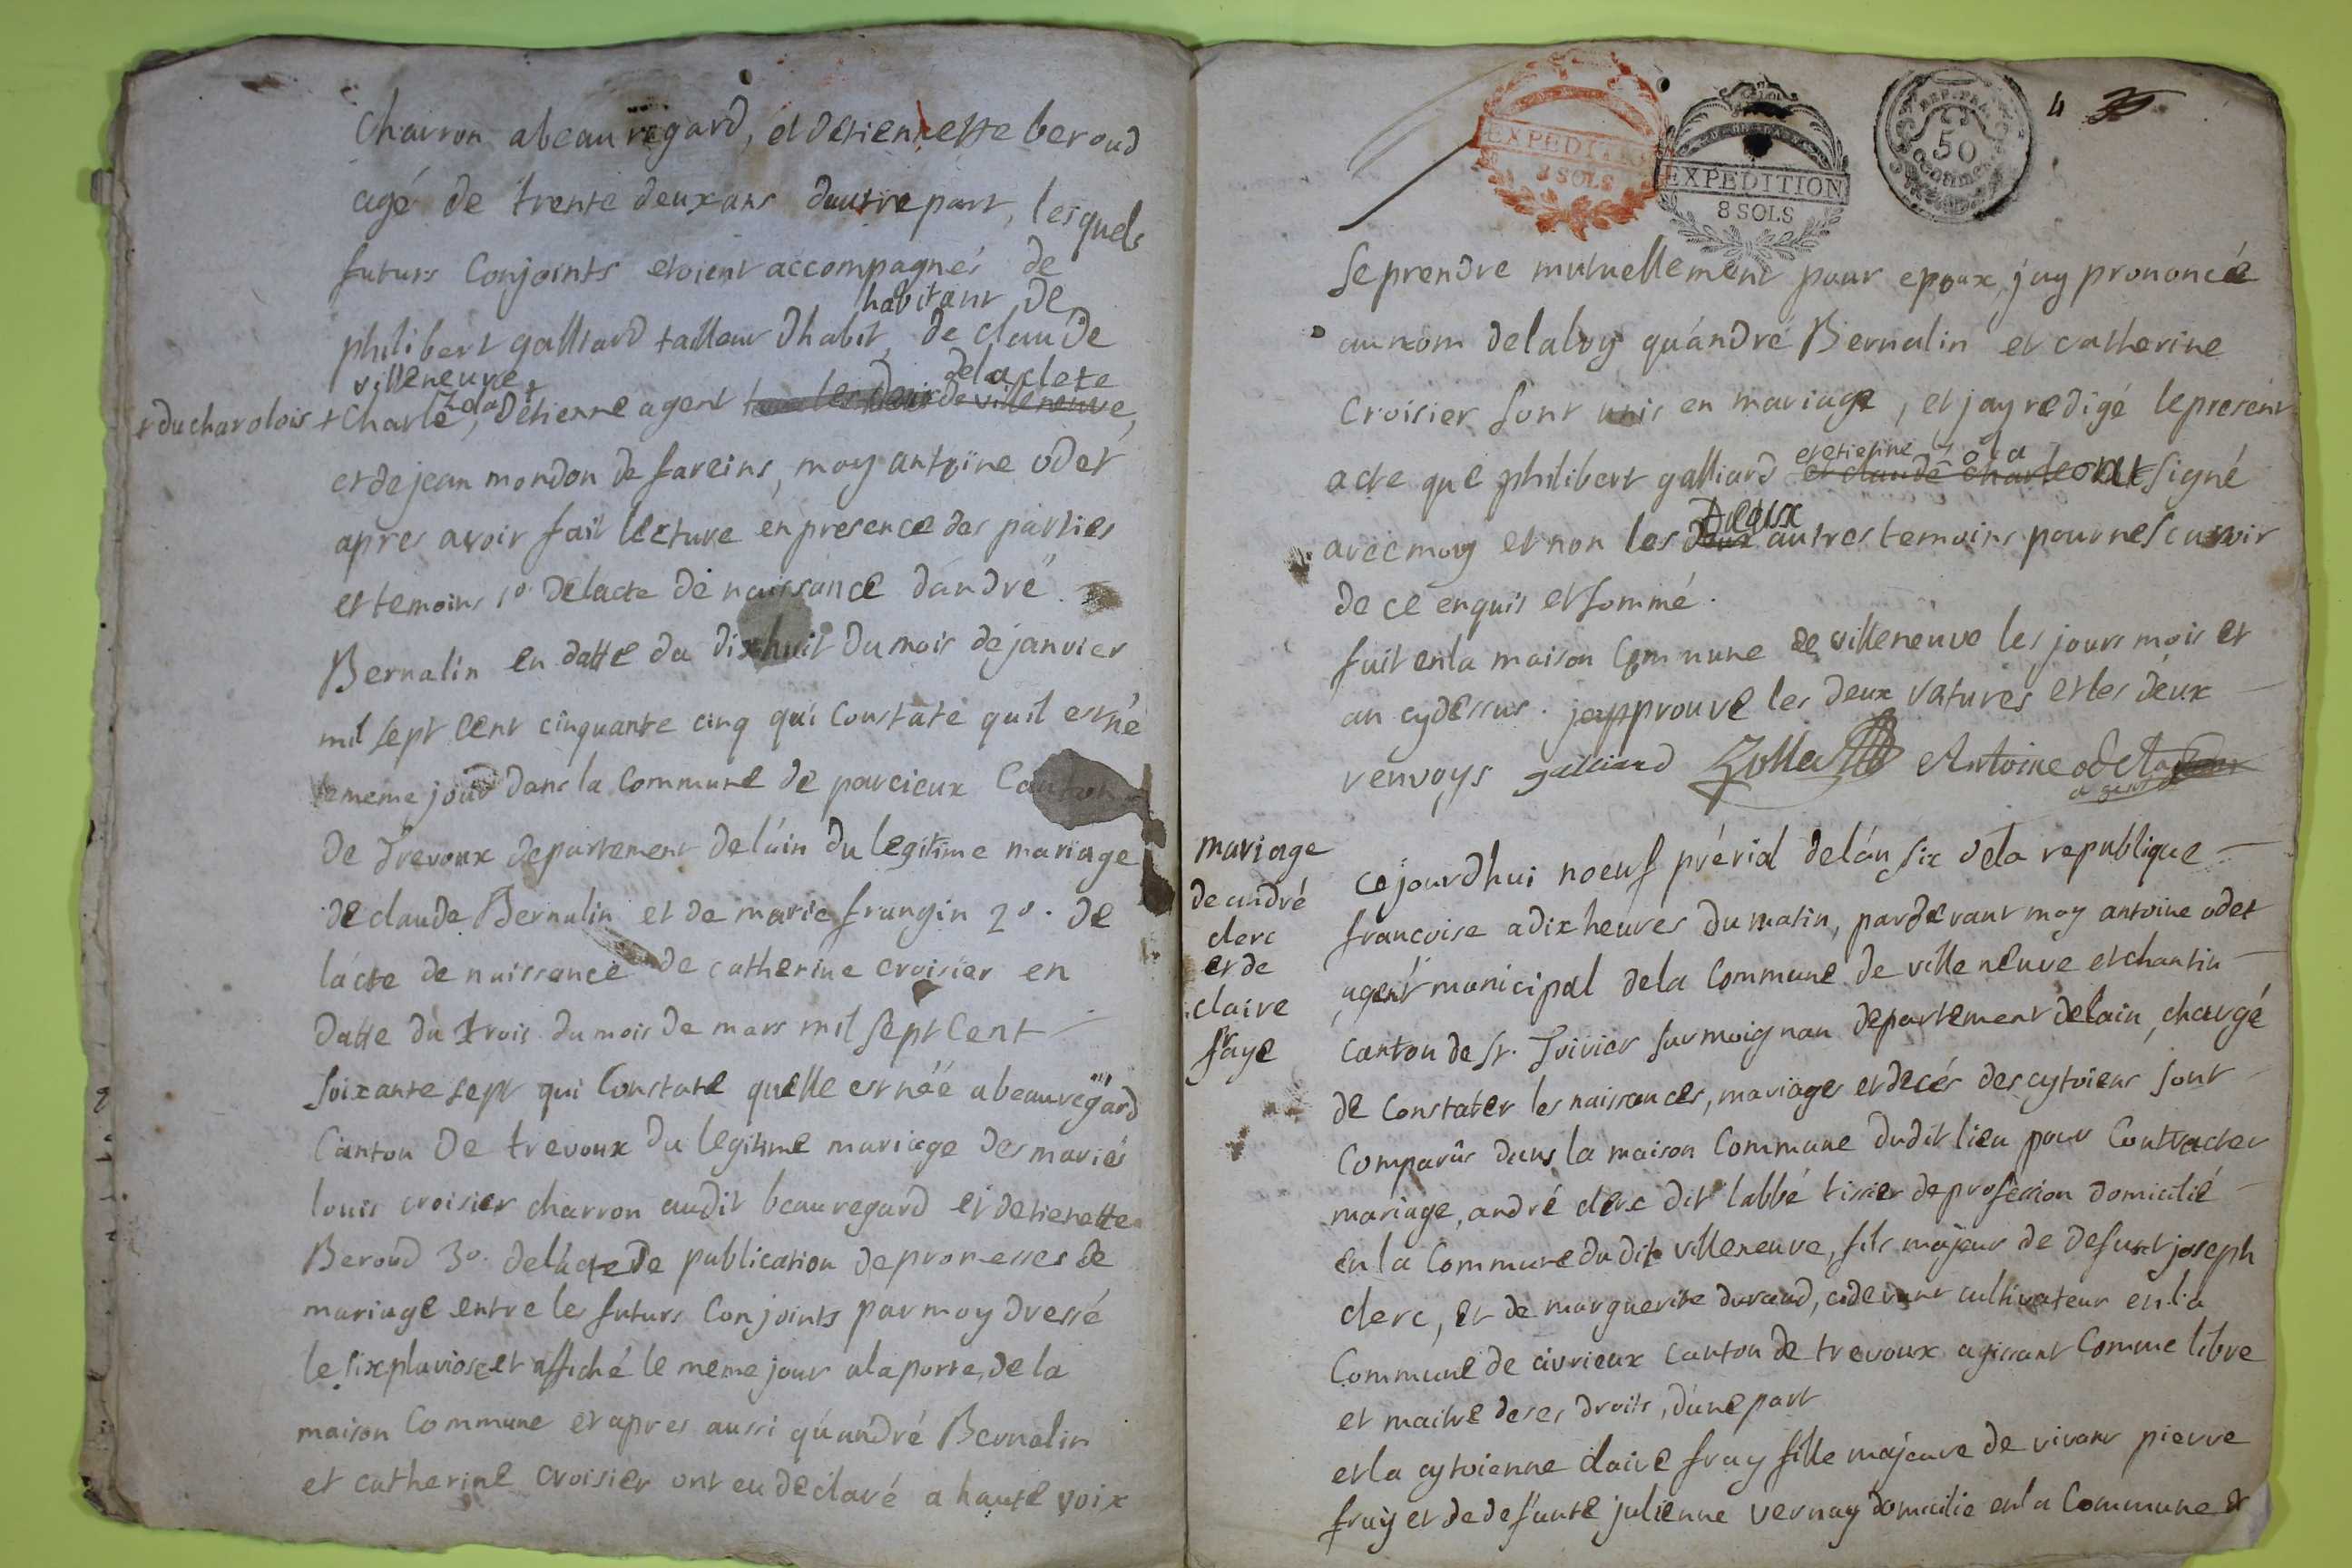 charron a beauregard, et detiennette beroud
agé de trente deux ans dautre part, lesquels
futurs Conjoints etoient accompagnés de
habitant de
philibert galliard tailleur dhabit, de claude
villeneuve, de la clete
+ du charolois + Charle, Zola detienne agent de villeneuve,
et de jean mondon de fareins, moy antoine odet
apres avoir fait lecture en presence des parties
et temoins 1º. delacte de naissance dandré
Bernalin en datte du dixhuit du mois de janvier
mil sept cent cinquante cinq qui Constate quil est né
le meme jour dans la Commune de parcieux Canton
de Trevoux departement delain du legitime mariage
de claude Bernalin et de marie frangin 2º. de
lacte de naissance de catherine croisier en
datte du trois du mois de mars mil sept Cent
soixante sept qui Constate quelle est néé a beauregard
Canton de trevoux du legitime mariage des mariés
louis croisier charron audit beauregard et detienette
Beroud 3º. delacte de publication de promesses de
mariage entre les futurs Conjoints par moy dressé
le six pluviose et affiché le meme jour a la porte de la
maison Commune et apres aussi quandré Bernalin
et catherine croisier ont eu declaré a haute voix
EXPEDITION
8 SOLS
EXPEDITION
8 SOLS
REP. FRA
50
centimes
4
se prendre mutuellement pour epoux, jay prononcé
au nom delaloy quándré Bernalin et catherine
Croisier sont unis en mariage, et jay redigé le present
et etienne zola
acte que philibert galliard et claude charle ont signé
deux
avec moy et non les deux autres temoins pour ne scavoir
de ce enquis et sommé.
fait en la maison Commune de villeneuve les jours mois et
an cydessus. japprouve les deux ratures et les deux
renvoys galliard Zolla Antoine odet
agent
mariage
de andré
clerc
et de
claire
fraye
cejourdhui noeuf prérial delán six dela republique
francoise a dix heures du matin, pardevant moy antoine odet
agent municipal dela Commune de villeneuve et chantin
canton de St. Trivier sur moignan departement delain, chargé
de Constater les naissances, mariages et decés des cytoiens sont
Comparûs dans la maison Commune dudit lieu pour Contracter
mariage, andré clerc dit labbé tissier de profession domicilié
en la Commune du dit villeneuve, fils majeur de defunt joseph
clerc, et de marguerite durand, cidevant cultivateur en la
Commune de civrieux canton de trevoux agissant Comme libre
et maitre de ses droits, dune part
et la cytoienne claire fray fille majeure de vivant pierre
fray et de defunte julienne vernay domicilie en la Commune de